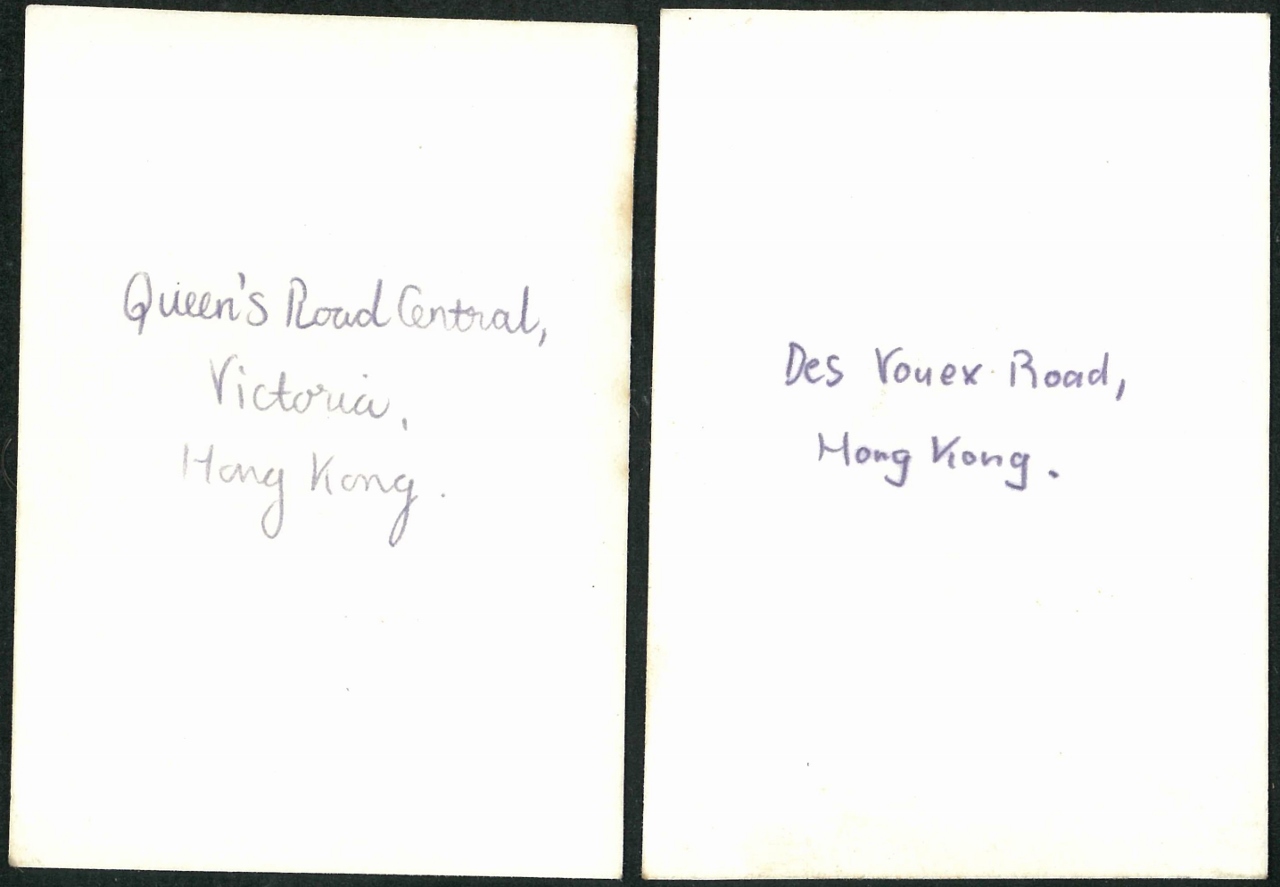 Queen's Road Central,
Victoria,
Hong Kong.
Des Vouex Road,
Hong Kong.